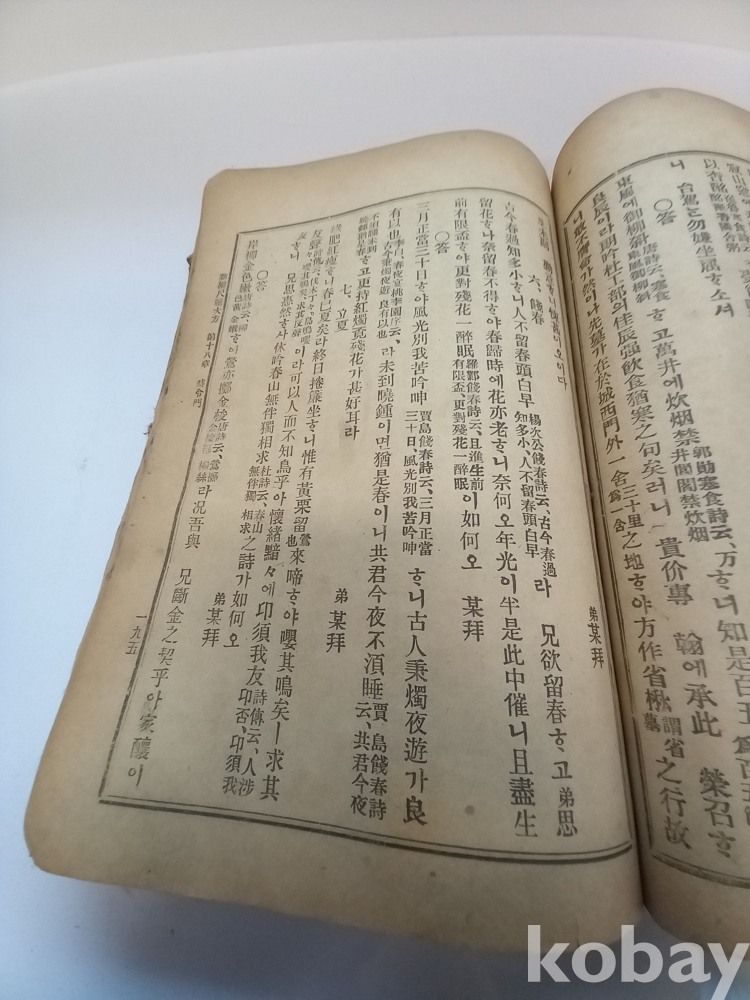 以
니 台駕는勿嫌坐屈ᄒᆞ소셔
○答
東風에御柳斜唐詩云、寒食東風御柳斜ᄒᆞ고萬井에炊烟禁郭勛寒食詩云、萬井閭閻禁炊烟ᄒᆞ니知是百五
良辰이라朗吟杜工部의佳辰强飮食猶寒之句矣러니 貴价專 翰에承此 榮召ᄒᆞ
니敢不
然이나先墓가在於城西門外一舍三十里爲一舍之地ᄒᆞ야方作省楸謂省墓之行故
弟某拜
六、餞春
古今春過知多小ᄒᆞ니人不留春頭白早楊次公餞春詩云、古今春過知多小、人不留春頭白早라 兄欲留春ᄒᆞ고弟思
留花ᄒᆞ나奈留春不得ᄒᆞ야春歸時에花亦老ᄒᆞ니奈何오年光이半是此中催니且盡生
前有限盃ᄒᆞ야更對殘花一醉眠羅鄴餞春詩云、且進生前有限盃、更對殘花一醉眠이如何오 某拜
○答
三月正當三十日ᄒᆞ야風光別我苦吟呻賈島餞春詩云、三月正當三十日、風光別我苦吟呻ᄒᆞ니古人秉燭夜遊가良
有以也李白、春夜宴桃李園序云、古人秉燭夜遊、良有以也라未到曉鍾이면猶是春이니共君今夜不湏睡賈島餞春詩云、共君今夜
不須睡未到曉鐘猶是春ᄒᆞ고更持紅燭竟殘花가甚好耳라 弟某拜
七、立夏
綠肥紅瘦ᄒᆞ니春已夏矣라終日捲簾坐ᄒᆞ니惟有黃栗留鶯也來啼ᄒᆞ야嚶其鳴矣ㅣ求其
友聲詩傳云、伐木丁々、鳥鳴嚶々、嚶其鳴矣、求其友聲이라可以人而不知鳥乎아懷緖黯々에卬須我友詩傳云、人涉卬否、卬須我
友ᄒᆞ니 兄思悥然ᄒᆞ사休吟春山無伴獨相求杜詩云、春山無伴獨相求之詩가如何오 弟某拜
○答
岸柳金色嫩唐詩云、柳色黃金嫩ᄒᆞ이鶯亦擲金梭唐詩云、鶯擲金梭織柳絲라况吾與 兄斷金之契乎아家釀이
第十八章
一九五
kobay